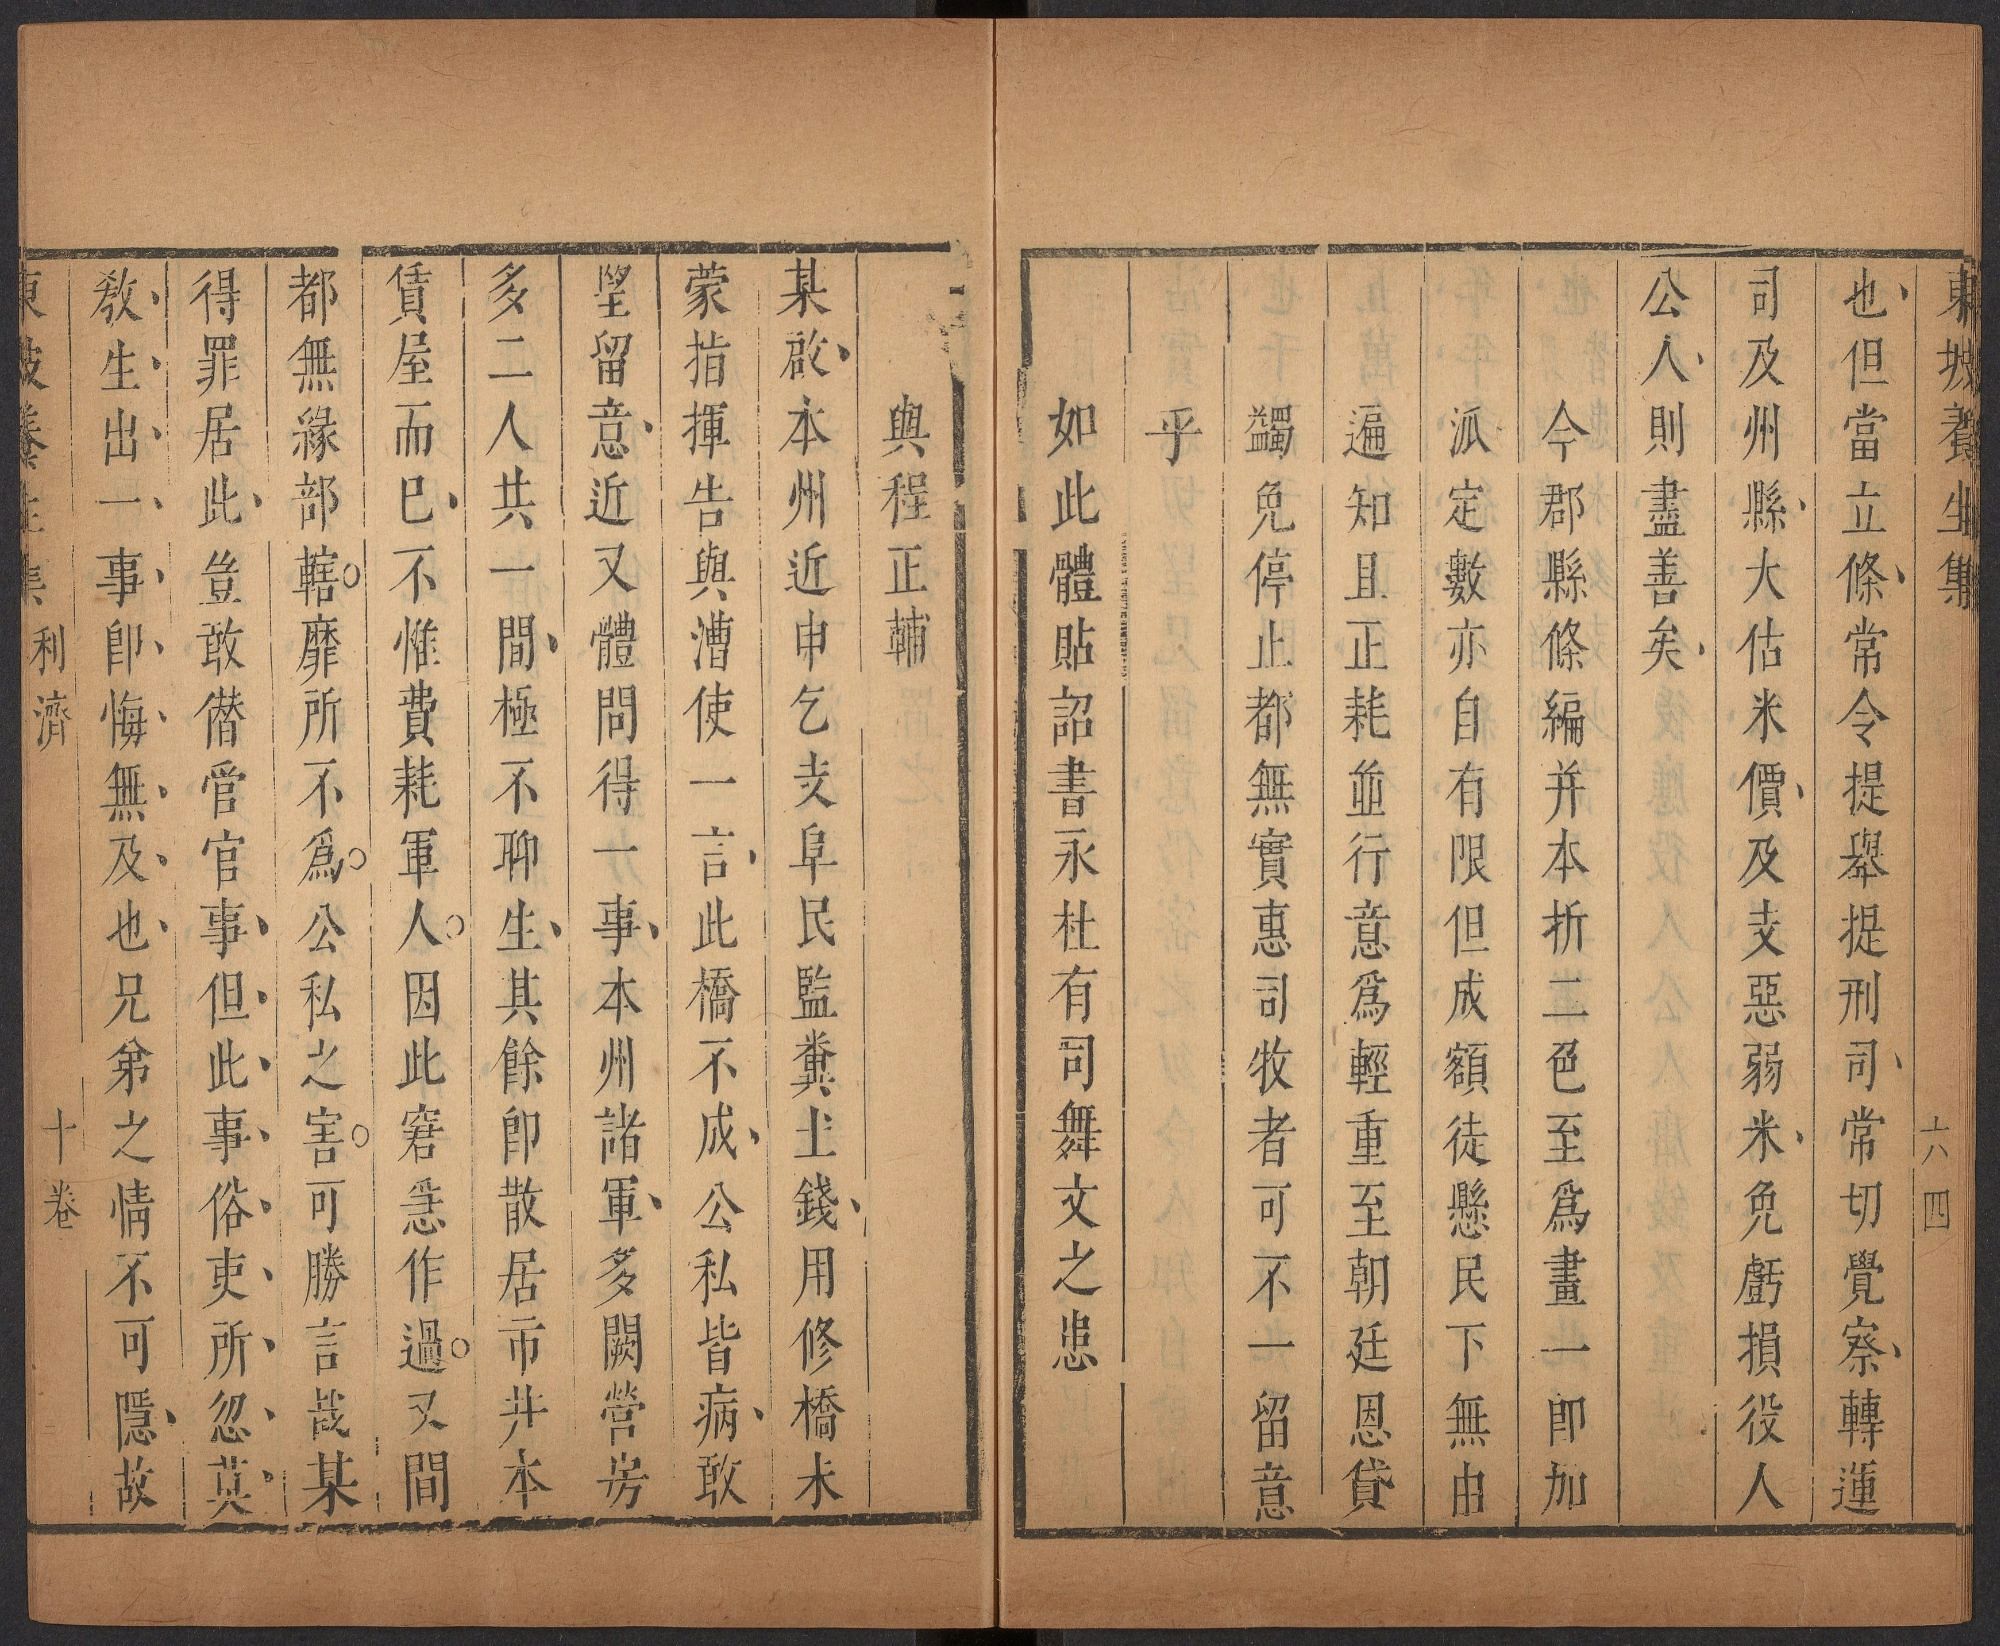 東坡養生集
六四
也但當立條常令提舉提刑司常切覺察轉運
司及州縣大估米價及支惡弱米免虧損役人
公人則盡善矣
今郡縣條編并本折二色至爲畫一卽加
派定數亦自有限但成額徒懸民下無由
遍知且正耗並行意爲輕重至朝廷恩貸
蠲免停止都無實惠司牧者可不一留意
乎
如此體貼詔書永杜有司舞文之患
與程正輔
某啟本州近申乞支阜民監糞土錢用修橋未
蒙指揮告與漕使一言此橋不成公私皆病敢
望留意近又體問得一事本州諸軍多闕營房
多二人共一間極不聊生其餘卽散居市井本
賃屋而已不惟費耗軍人因此窘急作過又間
都無緣部轄靡所不爲公私之害可勝言哉某
得罪居此豈敢僭管官事但此事俗吏所忽莫
教生出一事卽悔無及也兄弟之情不可隱故
東坡養生集 利濟 十卷